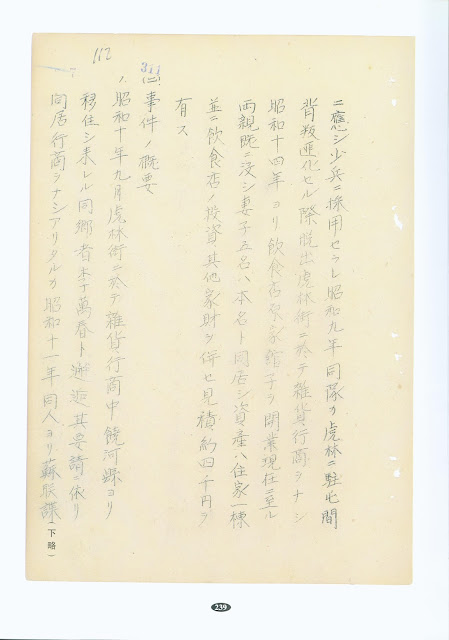 112
ニ應シ少兵ニ採用セラレ昭和九年同隊カ虎林ニ駐屯間
背叛進化セル際脱出虎林街ニ於テ雑貨行商ヲナシ
昭和十四年ヨリ飲食店家館子ヲ開業現在ニ至ル
両親既ニ没シ妻子五名ハ本名ト同居シ資産ハ住家一棟
並ニ飲食店ノ投資其他家財ヲ併セ見積約四千円ヲ
有ス
(二)事件ノ概要
ノ昭和十年九月虎林街ニ於テ雑貨行商中饒河縣ヨリ
移住シ来レル同郷者李萬春ト邂逅其要請ニ依リ
同居行商ヲナシアリタルカ昭和十一年同人ヨリ蘇聯諜(下略)
239